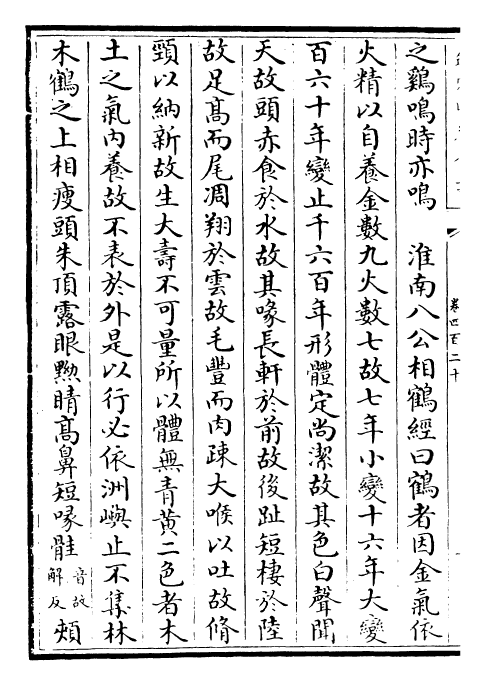 之鷄鳴時亦鳴　淮南八公相鶴經曰鶴者因金氣依
火精以自養金數九火數七故七年小變十六年大變
百六十年變止千六百年形體定尚潔故其色白聲聞
天故頭赤食於水故其喙長軒於前故後趾短棲於陸
故足髙而尾凋翔於雲故毛豐而肉疎大喉以吐故脩
頸以納新故生大壽不可量所以體無青黄二色者木
土之氣内養故不表於外是以行必依洲嶼止不集林
木鶴之上相瘦頭朱頂露眼黰睛髙鼻短喙䯐音故解反頰
卷四百二十